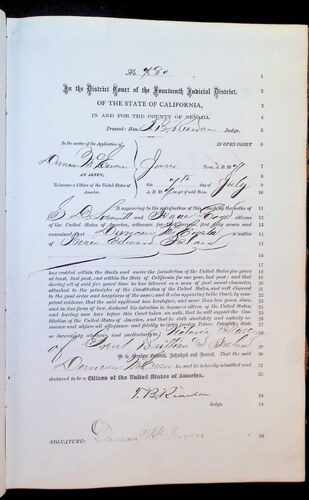 No.
In the District Court of the Fourteenth Judicial District.
OF THE STATE OF CALIFORNIA,
IN AND FOR THE COUNTY OF NEVADA.
Present: Hon. Judge.
In the matter of the Application of
IN OPEN COURT
Duncan June Term, A. D. 187
AN ALIEN,
To become a Citizen of the United States of America.
This 7th day of July
A. D. 187
It appearing to the satisfaction of this Court, by the
and citizens
of the United States, witnesses for that purpose, first duly sworn and
examined, that Duncan a native
of Prince Edward Island
has resided within the limits and under the jurisdiction of the United States five years
at least, last past, and within the State of California for one year, last past; and that
during all of said five years' time he has behaved as a man of good moral character,
attached to the principles of the Constitution of the United States, and well disposed
to the good order and happiness of the same; and it also appearing to the Court, by competent
evidence, that the said applicant has heretofore, and more than two years since,
and in due form of law, declared his intention to become a citizen of the United States,
and having now here before this Court taken an oath, that he will support the Constitution
of the United States of America, and that he doth absolutely and entirely renounce
and abjure all allegiance and fidelity to every foreign Prince, Potentate, State
or Sovereignty whatever, and particularly to Victoria Queen
of Great Brittain and Ireland
It is therefore Ordered, Adjudged and Decreed, That the said
Duncan be, and he is hereby admitted and
declared to be a Citizen of the United States of America.
Judge.
SIGNATURE: Duncan
1
2
3
4
5
6
7
8
9
10
11
12
13
14
15
16
17
18
19
20
21
22
23
24
25
26
27
28
29
30
31
32
33
34
35
36